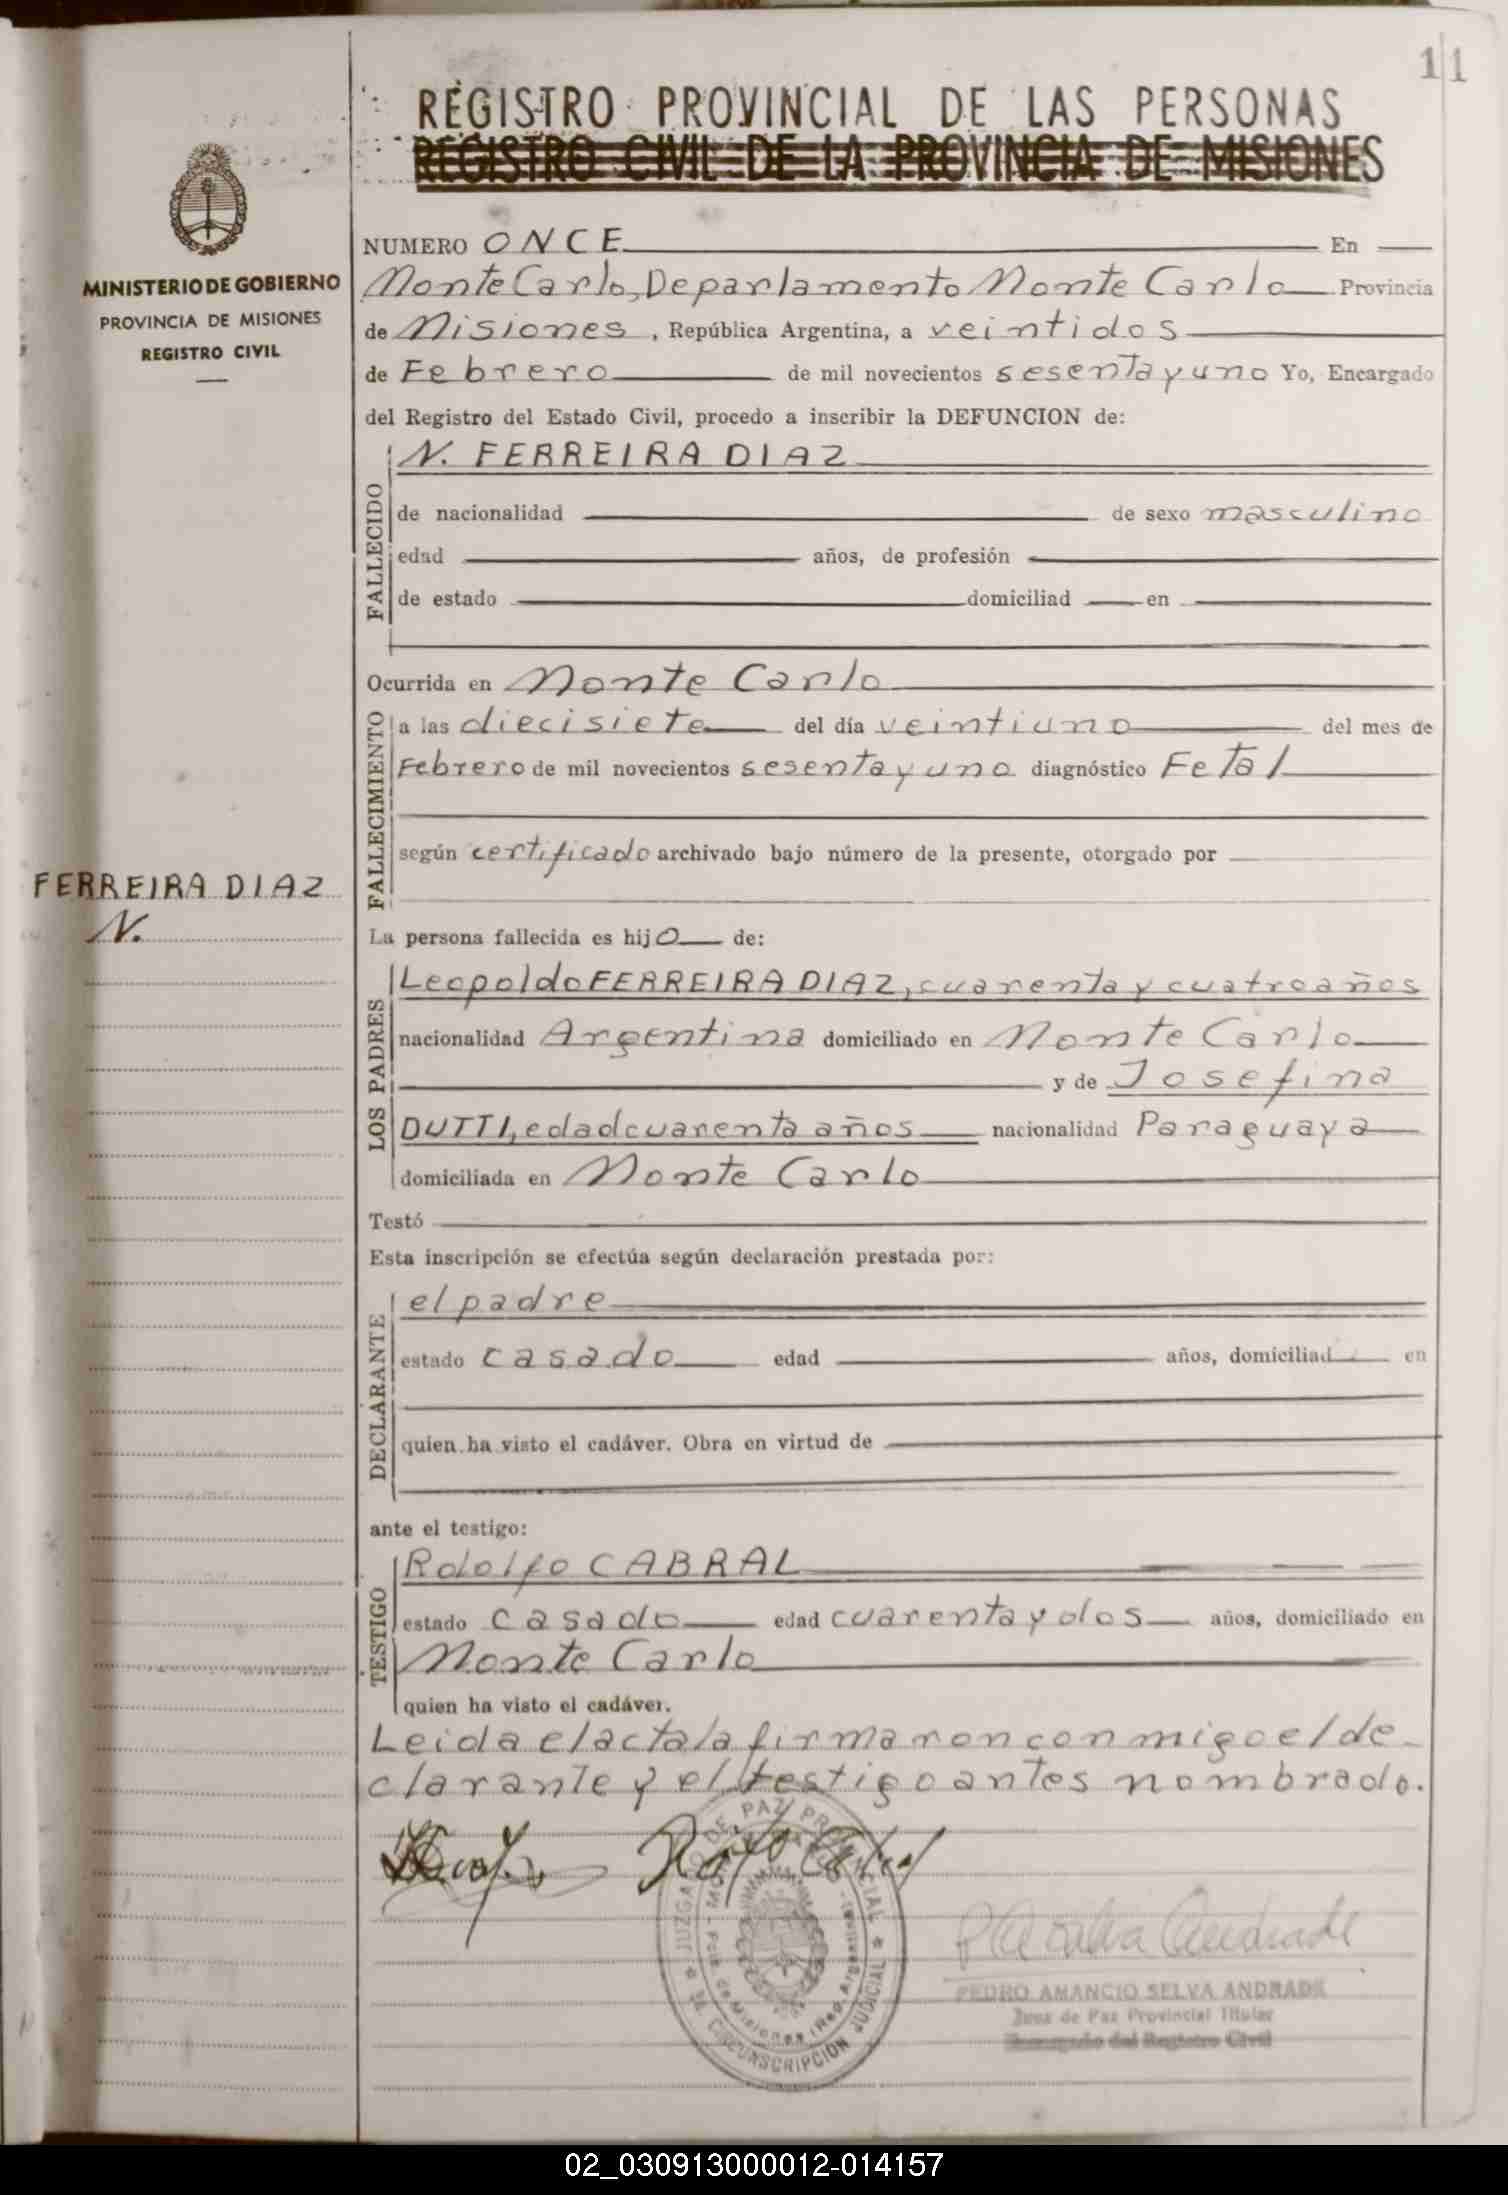 11
REGISTRO PROVINCIAL DE LAS PERSONAS
REGISTRO CIVIL DE LA PROVINCIA DE MISIONES
MINISTERIO DE GOBIERNO
PROVINCIA DE MISIONES
REGISTRO CIVIL
NUMERO ONCE En
Monte Carlo, Departamento Monte Carlo Provincia
de Misiones, República Argentina, a veintidos
de Febrero de mil novecientos sesenta y uno Yo, Encargado
del Registro del Estado Civil, procedo a inscribir la DEFUNCION de:
FALLECIDO
N. FERREIRA DIAZ
de nacionalidad de sexo masculino
edad años, de profesión
de estado domiciliad en
Ocurrida en Monte Carlo
FALLECIMIENTO
a las diecisiete del día veintiuno del mes de
Febrero de mil novecientos sesenta y uno diagnóstico Fetal
según certificado archivado bajo número de la presente, otorgado por
FERREIRA DIAZ
N.
La persona fallecida es hijo de:
LOS PADRES
Leopoldo FERREIRA DIAZ, cuarenta y cuatro años
nacionalidad Argentina domiciliado en Monte Carlo
y de Josefina
DUTTI, edad cuarenta años nacionalidad Paraguaya
domiciliada en Monte Carlo
Testó
Esta inscripción se efectúa según declaración prestada por:
DECLARANTE
el padre
estado casado edad años, domiciliad en
quien ha visto el cadáver. Obra en virtud de
ante el testigo:
TESTIGO
Rdolfo CABRAL
estado casado edad cuarenta y dos años, domiciliado en
Monte Carlo
quien ha visto el cadáver.
Leida el acta la firmaron conmigo el de-
clarante y el testigo antes nombrado.
JUZGADO DE PAZ PROVINCIAL
3a. CIRCUNSCRIPCION JUDICIAL
Pcia. de Misiones (Rep. Argentina)
PEDRO AMANCIO SELVA ANDRADE
Juez de Paz Provincial Titular
Encargado del Registro Civil
02_030913000012-014157